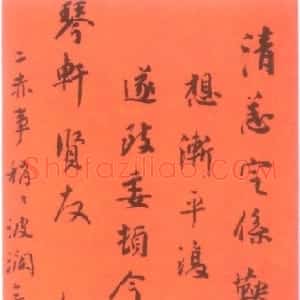 清恙定係
想漸平復
遂致委頓今
琴軒賢友
二赤事稍々波瀾
Shufaziliao.com